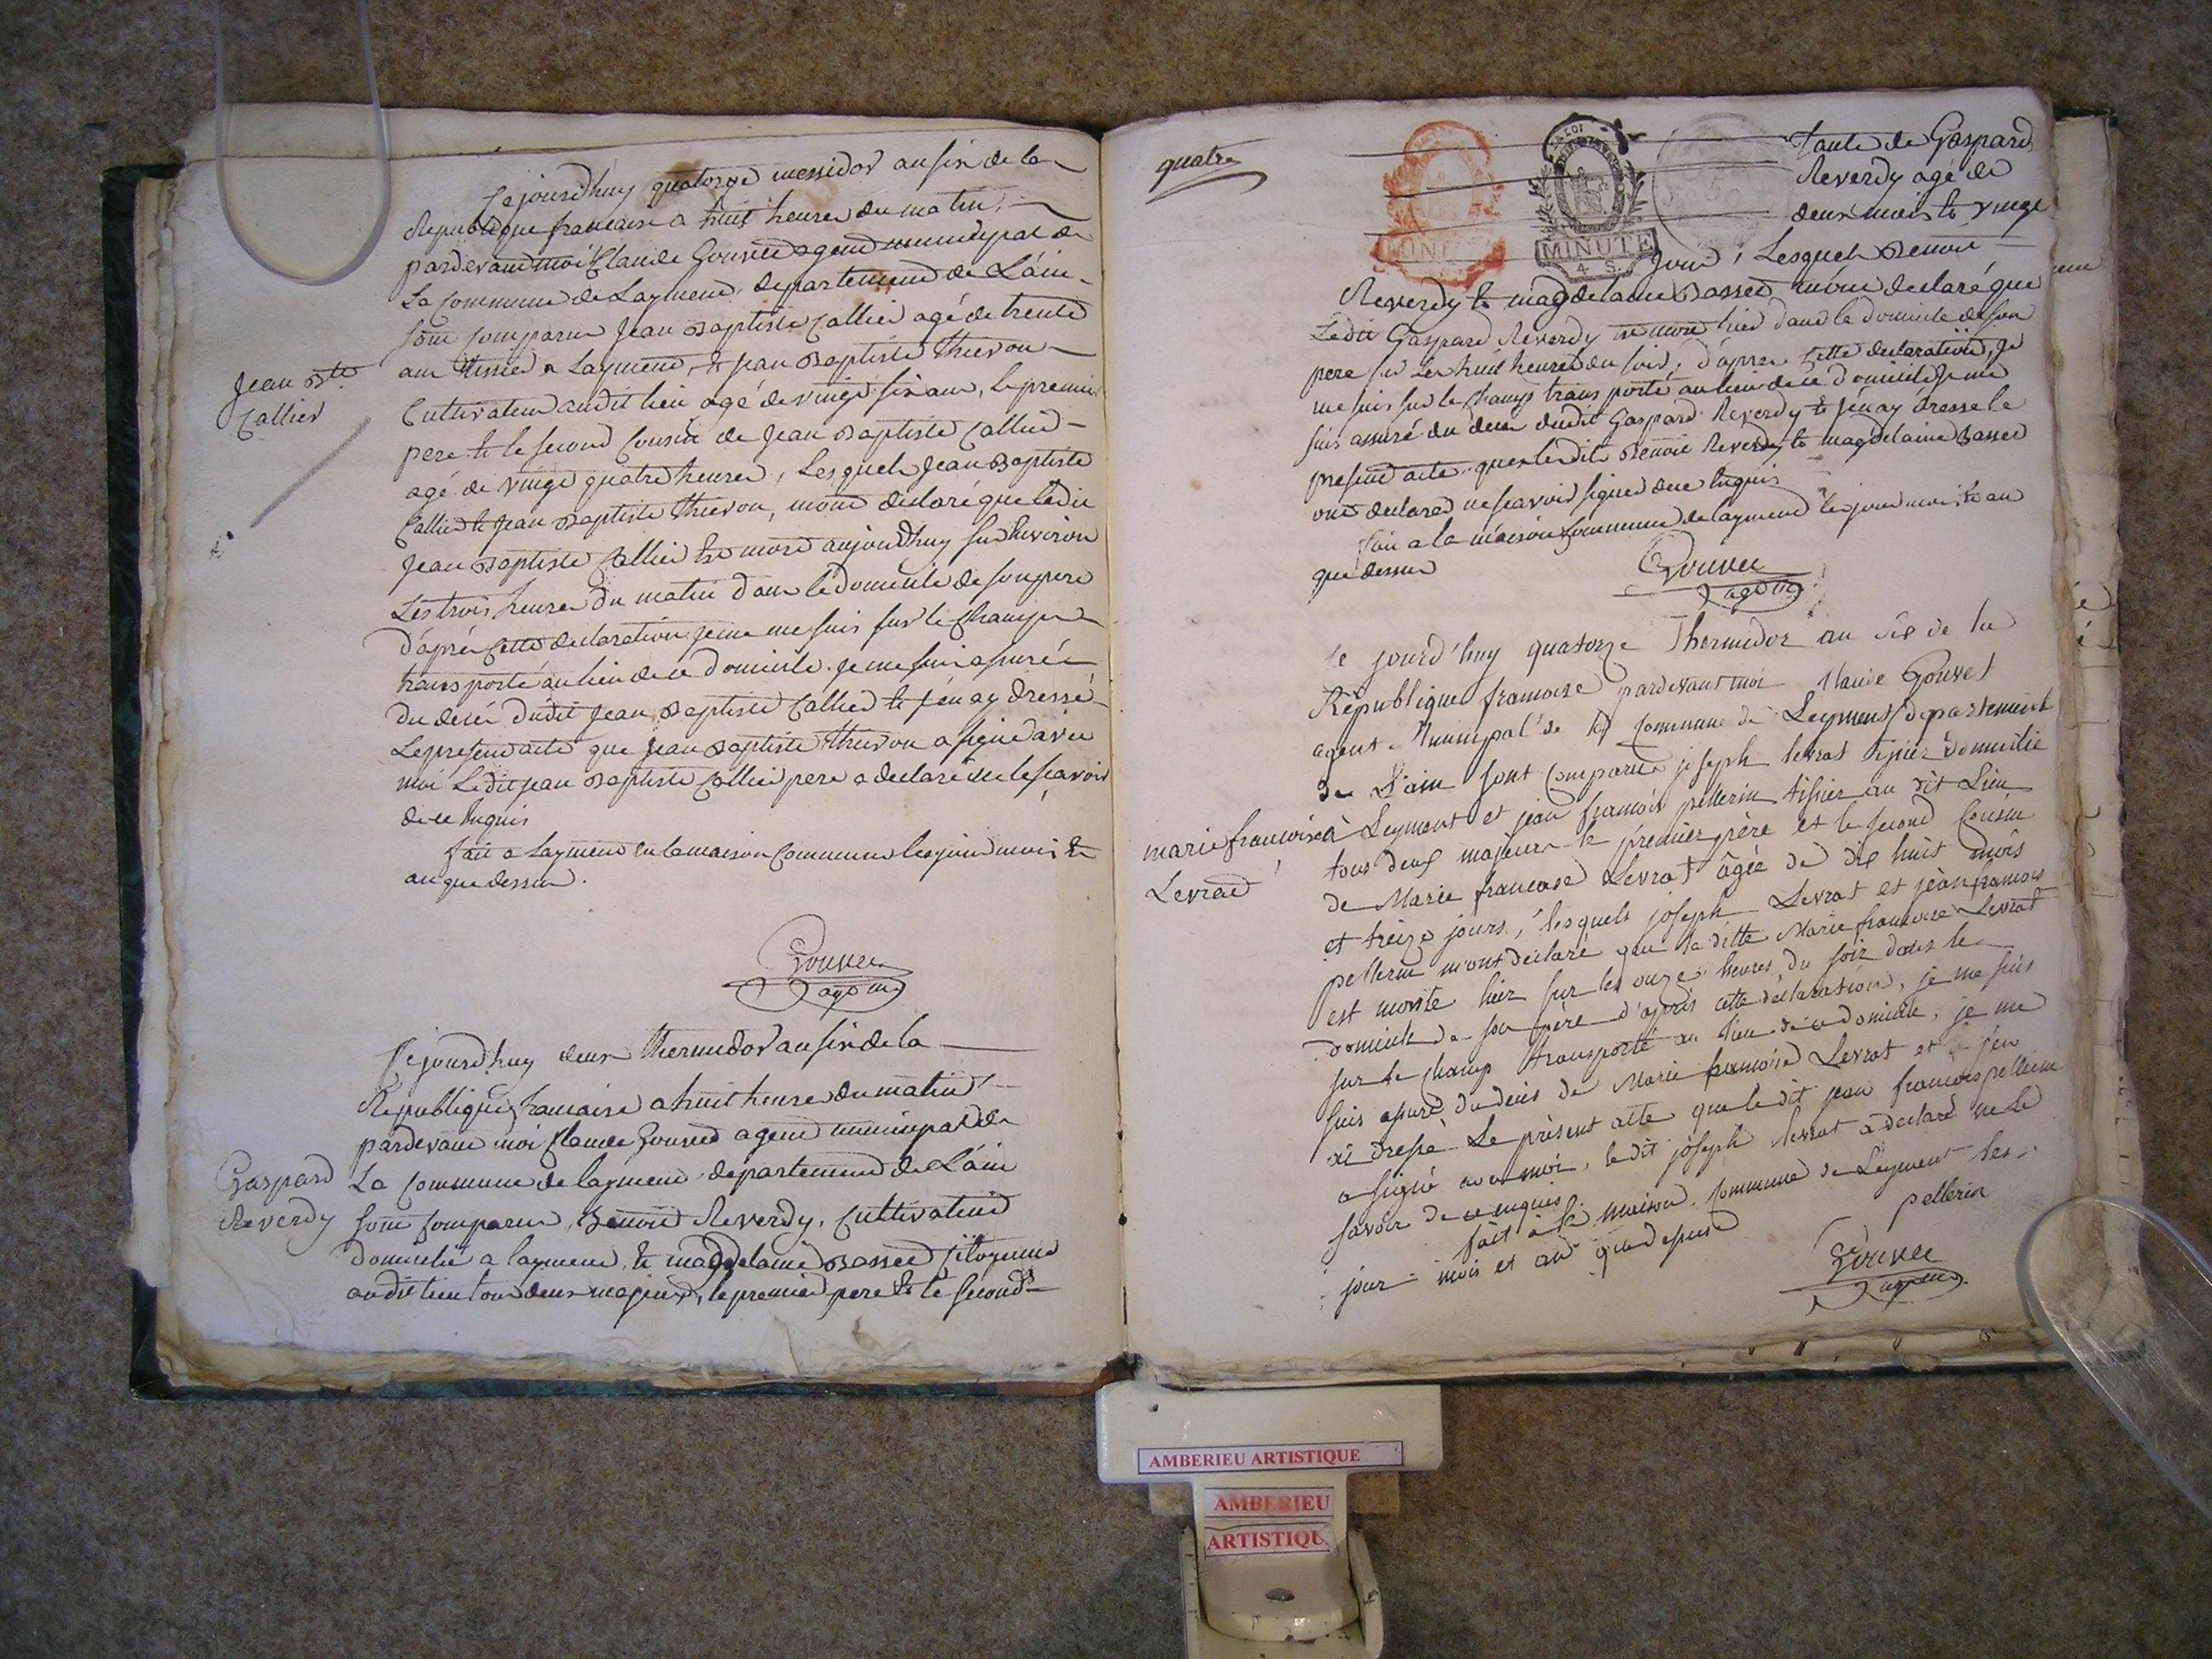 Cejourd'huy quatorze messidor an six de la
Republique francaise a huit heures du matin,
pardevand moi Claude Gouvet agend municipal de
La Commune de Laymend departement de L'ain
sont comparus Jean Baptiste Callier agé de trente
ans tissier a Laymend, et jean Baptiste thievon
Jean Bte
Callier
Cultivateur audit lieu agé de vingt six ans, le premier
pere et le second Cousin de Jean Baptiste Callier
agé de vingt quatre heures, Lesquels Jean Baptiste
Callier et Jean Baptiste thievon, m'ont declaré que ledit
Jean Baptiste Callier est mort aujourdhuy sur Environ
Les trois heures du matin dans le domicile de son pere
d'après cette declaration je me suis sur le Champ
transporté au lieu de ce domicile. je me suis assuré
du deces dudit Jean Baptiste Callier et j'en ay dressé
Le present acte que Jean Baptiste thievon a signé avec
moi Ledit jean Baptiste Callier pere a declaré ne le scavoir
de ce Enquis
fait a Laymend en la maison Commune les jour mois et
an que dessus.
Gouvet
agent m
Cejourd'huy deux thermidor an six de la
Republique francaise a huit heures du matin
pardevant moi Claude Gouvet agend municipal de
Gaspard
Reverdy
La Commune de laymend departement de L'ain
sont comparus, Benoit Reverdy, Cultivateur
domicilié a laymend, et magdelaine Basset Citoyenne
audit lieu tous deux majeurs, le premier pere et le second
quatre
tante de Gaspard
Reverdy agé de
deux mois et vingt
MINUTE
4 S.
jours, Lesquels Benoit
Reverdy et magdelaine Basset m'ont declaré que
Ledit Gaspard Reverdy est mort hier dans le domicile de son
pere sur Les huit heures du soir, d'après cette declaration, je
me suis sur le champ transporté au lieu de ce domicile je me
suis assuré du deces dudit Gaspard Reverdy et j'en ay dressé le
present acte que lesdits Benoit Reverdy et magdelaine Basset
ont declarer ne scavoir signer de ce Enquis
fait a la maison Commune de laymend les jour mois et an
que dessus
Gouvet
agent m
Ce jourd'huy quatorze Thermidor an six de la
République francoise pardevant moi Claude Gouvet
agent Municipal de la Commune de Leyment département
de L'ain sont Comparus joseph levrat tissier domicilie
marie francoise
Levrat
à Leyment et jean francois pellerin tissier au dit Lieu
tous deux majeurs le prémier père et le second Cousin
de Marie francoise Levrat âgée de dix huit mois
et treize jours, lesquels joseph Levrat et jean francois
pellerin m'ont déclaré que la ditte Marie francoise Levrat
est morte hier sur les onze heures du soir dans le
domicile de son père d'après cette déclaration, je me suis
sur le champ transporté au lieu de ce domicile, je me
suis assuré du decès de Marie francoise Levrat et j'en
ai dressé Le présent acte que le dit jean francois pellerin
a signé avec moi, le dit joseph levrat a declaré ne le
savoir de ce enquis
fait à la maison Commune de Leyment les
jour mois et an que dessus
pellerin
Gouvet
agent m
AMBERIEU ARTISTIQUE
AMBERIEU
ARTISTIQU